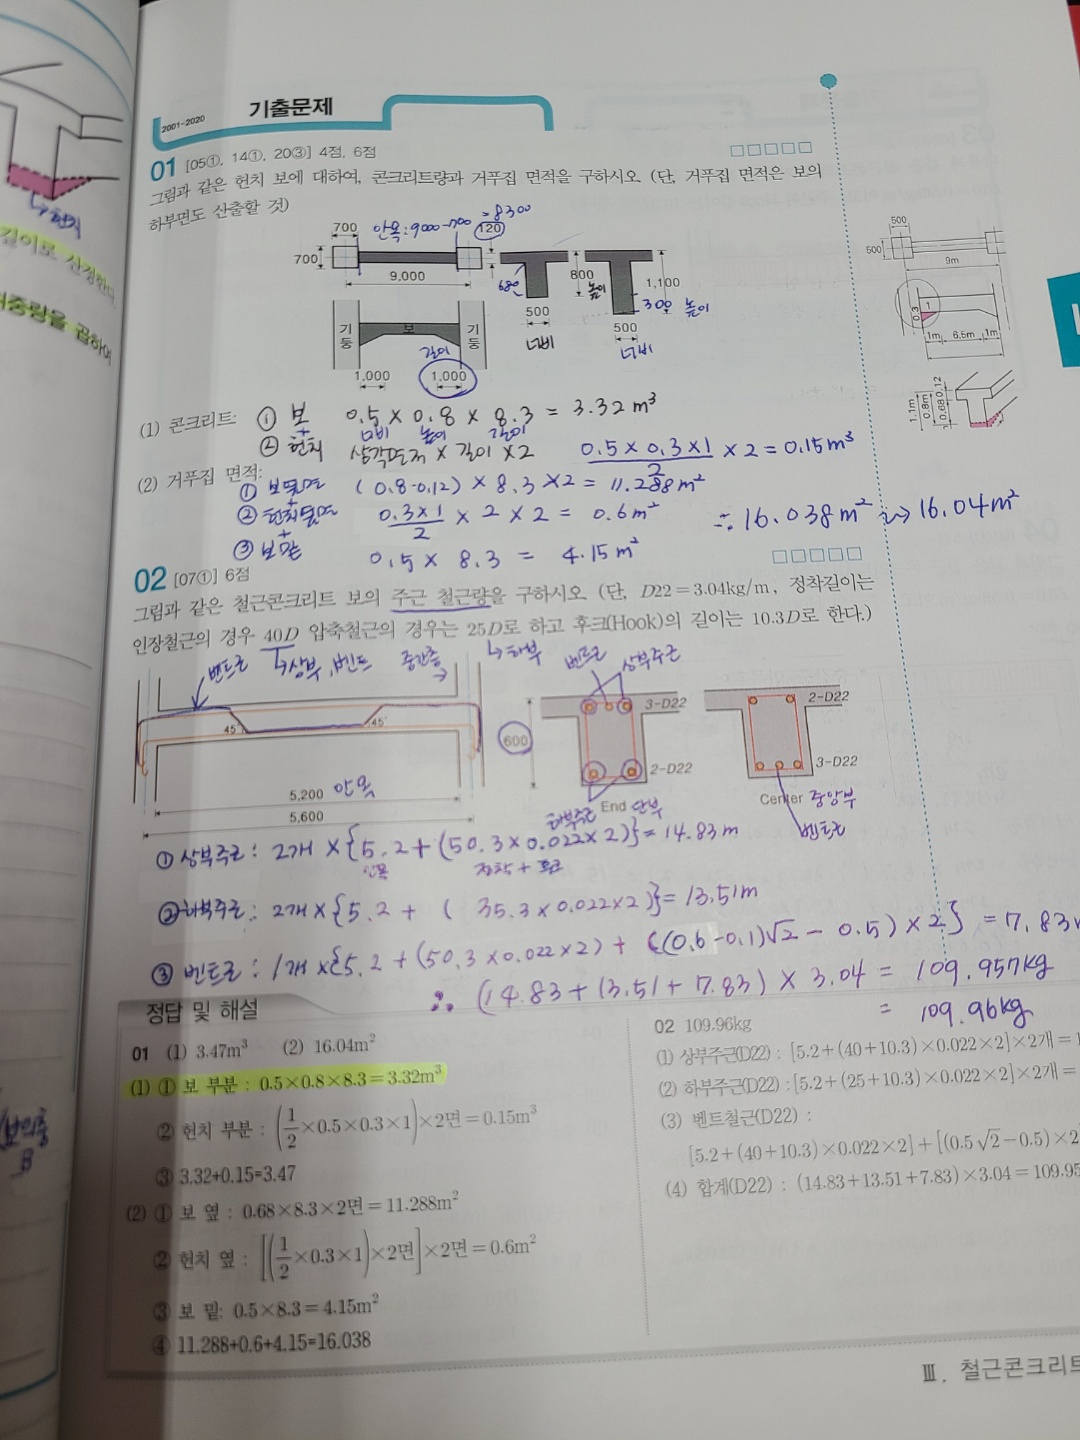 2001-2020 기출문제
01 [05①, 14①, 20③] 4점, 6점
그림과 같은 헌치 보에 대하여, 콘크리트량과 거푸집 면적을 구하시오. (단, 거푸집 면적은 보의
하부면도 산출할 것)
700 안목:9000-700=8300
120
700
9,000
680
800 높이
1,100
300 높이
500
너비
500
너비
기둥
보
기둥
길이
1,000
1,000
500
500
9m
0.3
1
1m 6.5m 1m
1.1m
0.8m
0.68
0.12
(1) 콘크리트: ① 보 0.5 × 0.8 × 8.3 = 3.32 m³
+ 너비 높이 길이
② 헌치 삼각면적 × 길이 × 2 0.5×0.3×1/2 × 2 = 0.15m³
(2) 거푸집 면적:
① 보옆면 (0.8-0.12) × 8.3 × 2 = 11.288m²
+
② 헌치옆면 0.3×1/2 × 2 × 2 = 0.6m²
∴ 16.038m² ↝ 16.04m²
+
③ 보밑 0.5 × 8.3 = 4.15m²
02 [07①] 6점
그림과 같은 철근콘크리트 보의 주근 철근량을 구하시오. (단, D22=3.04kg/m, 정착길이는
인장철근의 경우 40D 압축철근의 경우는 25D로 하고 후크(Hook)의 길이는 10.3D로 한다.)
벤트근
↳상부, 벤트
↳하부
벤트근
상부주근
45°
45°
5,200 안목
5,600
600
3-D22
2-D22
하부주근
End 단부
2-D22
3-D22
Center 중앙부
벤트근
① 상부주근 : 2개 ×{5.2+(50.3×0.022×2)}=14.83m
안목 정착+후크
② 하부주근 : 2개×{5.2 + ( 35.3×0.022×2)}=13.51m
③ 벤트근 : 1개 ×{5.2+(50.3×0.022×2) + ((0.6-0.1)√2 - 0.5)×2} = 7.83
∴ (14.83+13.51+7.83) × 3.04 = 109.957kg
= 109.96kg
정답 및 해설
01 (1) 3.47m³ (2) 16.04m²
(1) ① 보 부분 : 0.5×0.8×8.3=3.32m³
② 헌치 부분 : (1/2×0.5×0.3×1)×2면=0.15m³
③ 3.32+0.15=3.47
(2) ① 보 옆 : 0.68×8.3×2면=11.288m²
② 헌치 옆 : [(1/2×0.3×1)×2면]×2면=0.6m²
③ 보 밑: 0.5×8.3=4.15m²
④ 11.288+0.6+4.15=16.038
02 109.96kg
(1) 상부주근(D22) : [5.2+(40+10.3)×0.022×2]×2개=
(2) 하부주근(D22) : [5.2+(25+10.3)×0.022×2]×2개=
(3) 벤트철근(D22) :
[5.2+(40+10.3)×0.022×2]+[(0.5√2-0.5)×2
(4) 합계(D22) : (14.83+13.51+7.83)×3.04=109.95
Ⅲ. 철근콘크리트